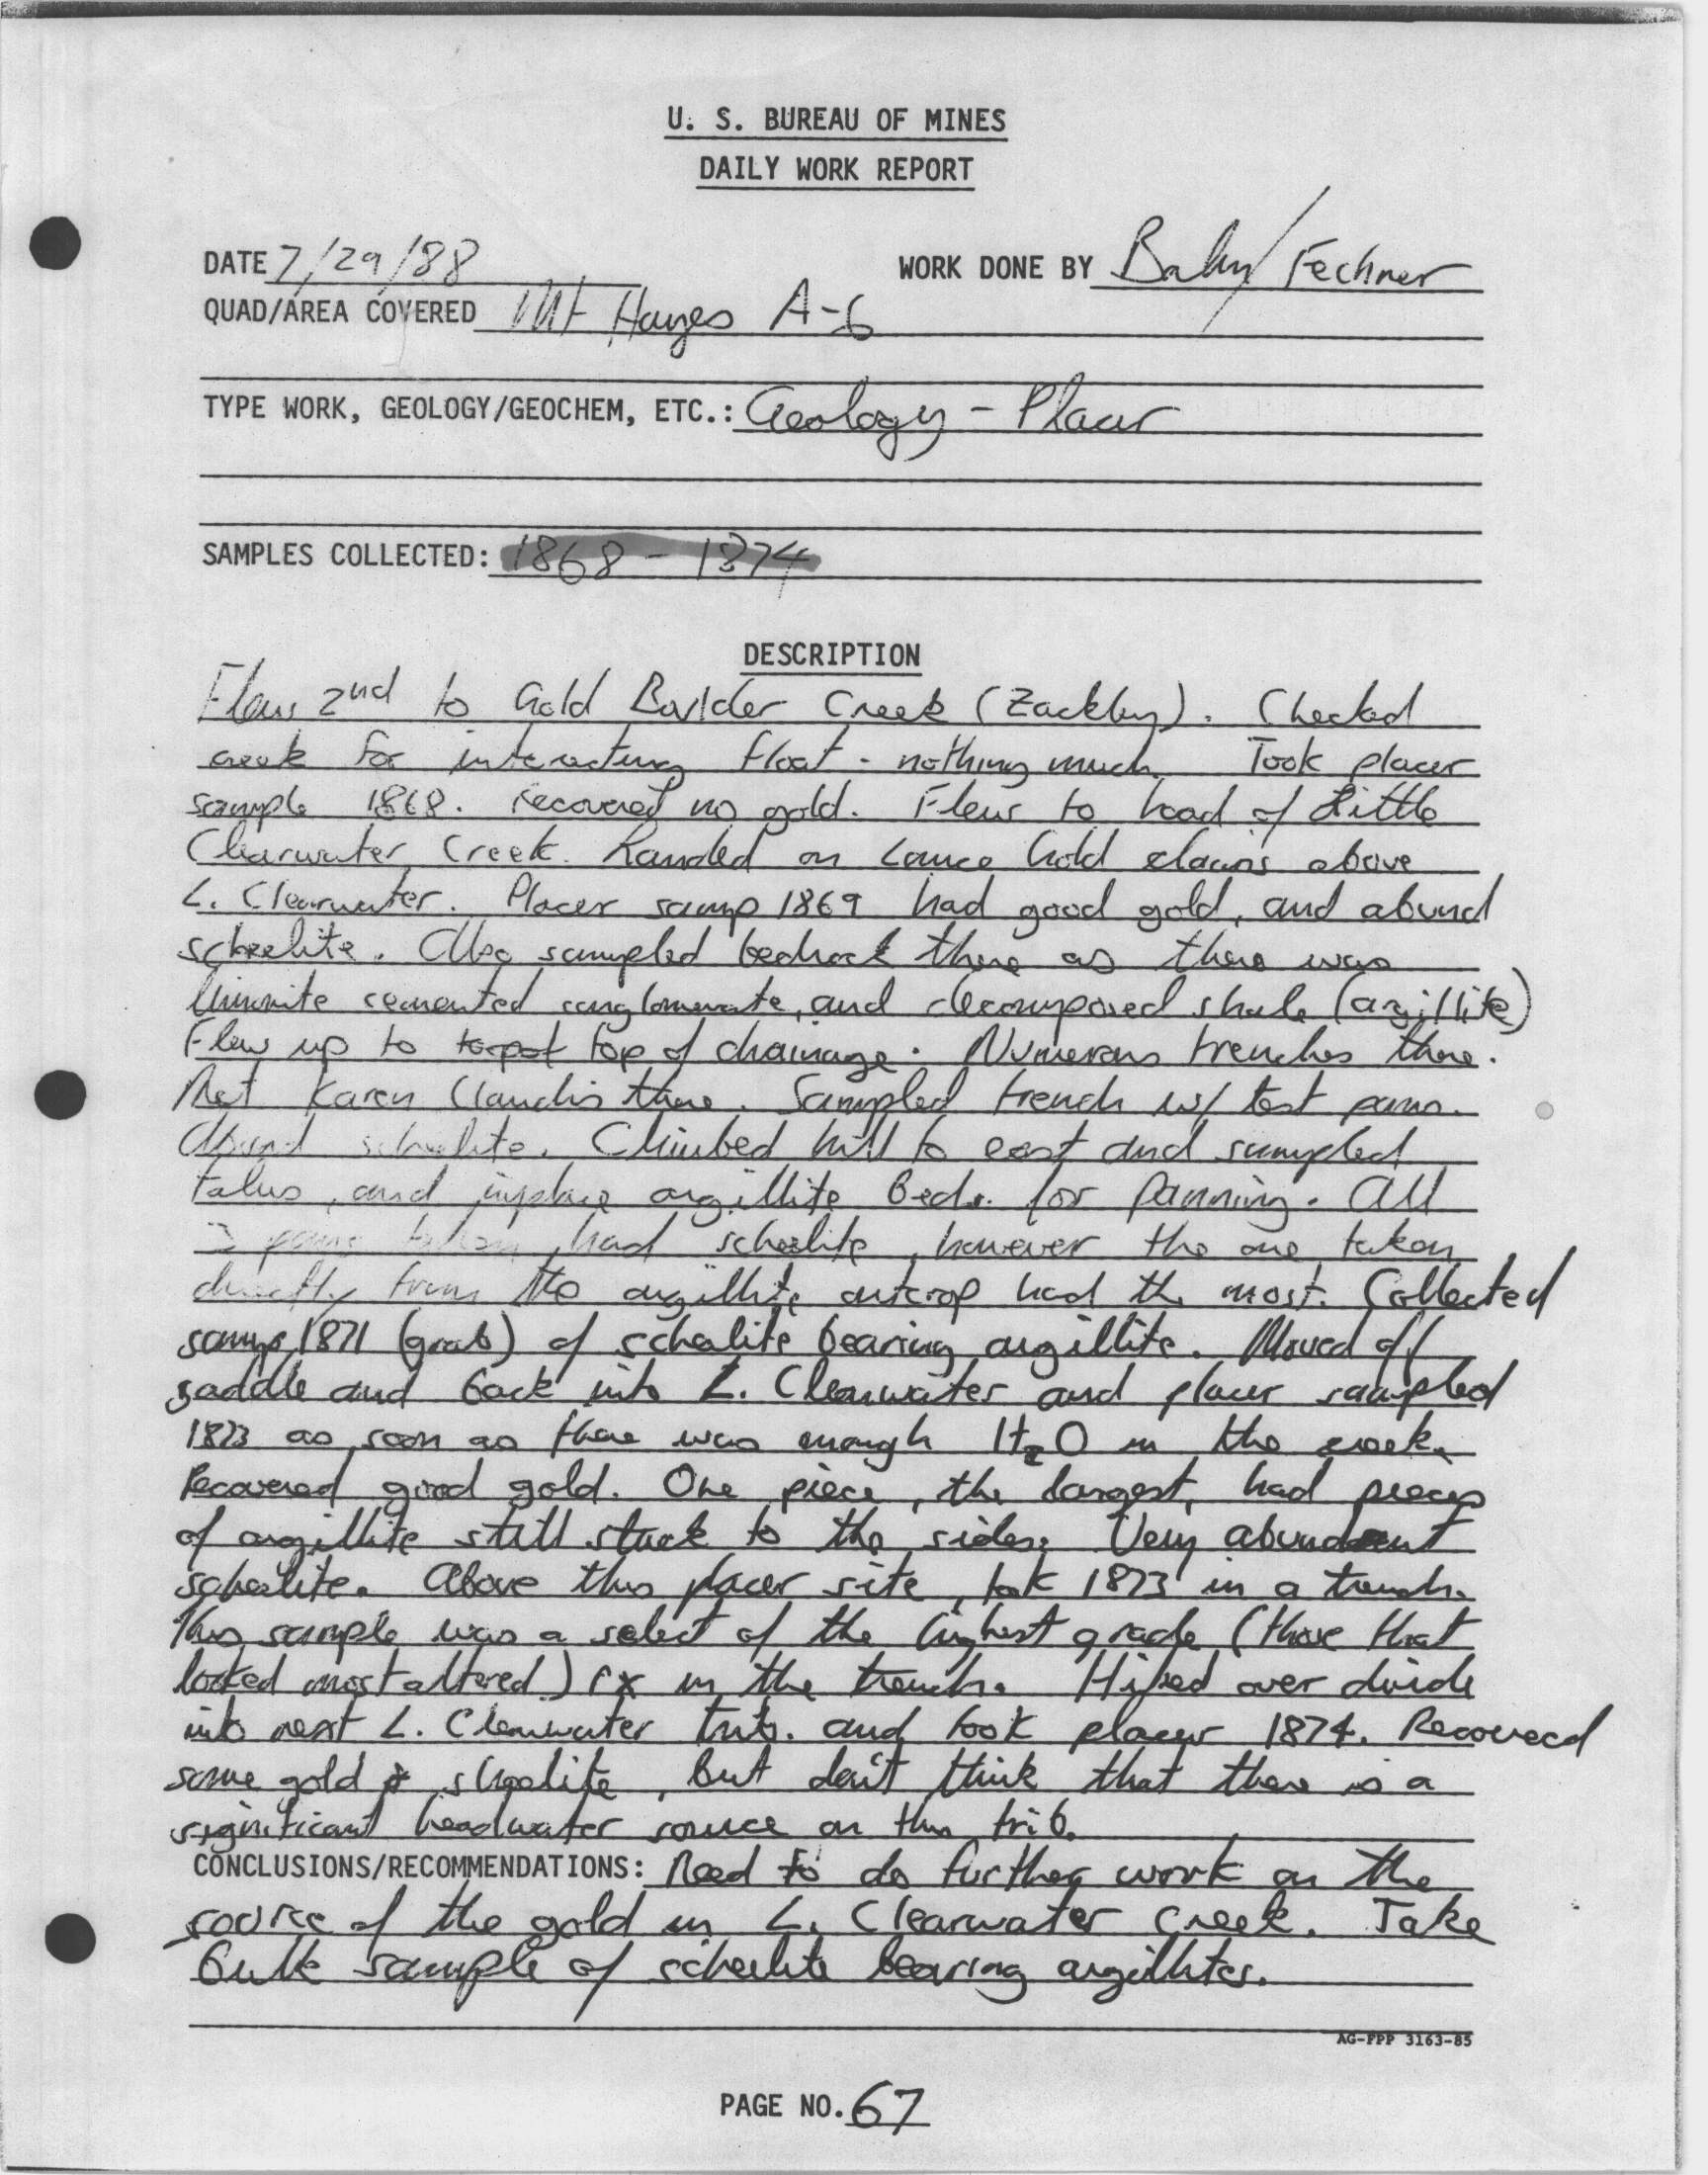 U. S. BUREAU OF MINES
DAILY WORK REPORT
DATE 7/29/88 WORK DONE BY Balen/Fechner
QUAD/AREA COVERED Mt Hayes A-6
TYPE WORK, GEOLOGY/GEOCHEM, ETC.: Geology - Placer
SAMPLES COLLECTED: 1868 - 1874
DESCRIPTION
Flew 2nd to Gold Boulder Creek (Zackly). Checked
creek for interesting float - nothing much. Took placer
sample 1868. recovered no gold. Flew to head of Little
Clearwater Creek. Landed on Lance Gold claims above
L. Clearwater. Placer samp 1869 had good gold, and abund
scheelite. Also sampled bedrock there as there was
limonite cemented conglomerate, and decomposed shale (argillite)
Flew up to top of drainage. Numerous trenches there.
Met Karen Claudis there. Sampled trench w/ test pans.
Abund scheelite. Climbed hill to east and sampled
talus, and inplace argillite beds. for panning. All
3 pans taken, had scheelite, however the one taken
directly from the argillite outcrop had the most. Collected
samp 1871 (grab) of scheelite bearing argillite. Moved off
saddle and back into L. Clearwater and placer sampled
1873 as soon as there was enough H2O in the creek.
Recovered good gold. One piece, the largest, had pieces
of argillite still stuck to the sides. Very abundant
scheelite. Above this placer site, took 1873 in a trench.
This sample was a select of the highest grade (those that
looked most altered) rx in the trench. Hiked over divide
into next L. Clearwater trib. and took placer 1874. Recovered
some gold & scheelite, but don't think that there is a
significant headwater source on this trib.
CONCLUSIONS/RECOMMENDATIONS: Need to do further work on the
source of the gold in L. Clearwater Creek. Take
bulk sample of scheelite bearing argillites.
AG-FPP 3163-85
PAGE NO. 67